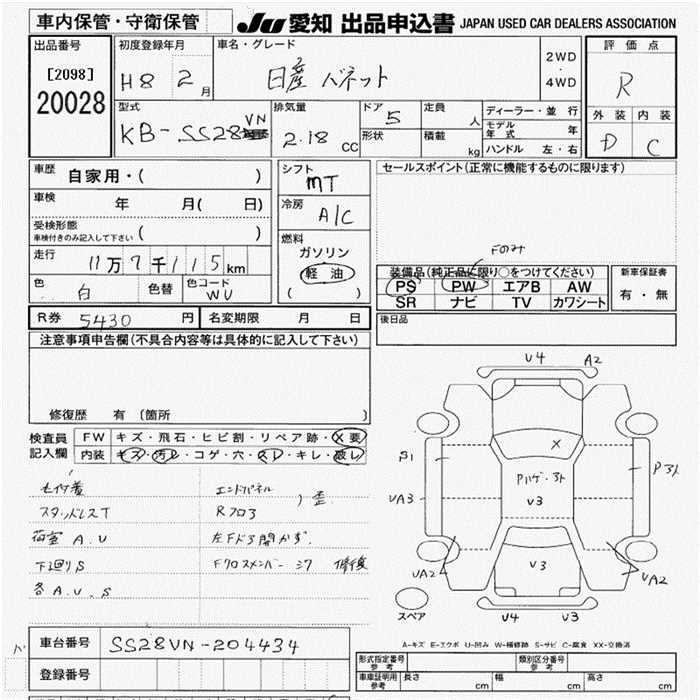 車内保管・守衛保管
JU 愛知 出品申込書 JAPAN USED CAR DEALERS ASSOCIATION
出品番号
[2098]
20028
初度登録年月
H8 2月
車名・グレード
日産 バネット
2WD
・
4WD
評価点
R
外装 内装
D C
型式
KB-SS28VN
排気量
2.18 CC
ドア 5
形状
定員 人
積載 kg
ディーラー・並行
モデル年式 年
ハンドル 左・右
車歴 自家用・( )
車検 年 月( 日)
受検形態
車検付きのみ記入して下さい ( )
走行 11万7千115km
色 白 色替 色コード WU
シフト MT
冷房 A/C
燃料
ガソリン
軽油
( )
セールスポイント(正常に機能するものに限ります)
Fのみ
装備品(純正品に限り○をつけてください)
PS PW エアB AW
SR ナビ TV カワシート
新車保証書
有・無
後日品
R券 5430円 名変期限 月 日
注意事項申告欄(不具合内容等は具体的に記入して下さい)
修復歴 有(箇所 )
検査員記入欄
FW キズ・飛石・ヒビ割・リペア跡・X要
内装 キズ・汚レ・コゲ・穴・スレ・キレ・破レ
スタッドレスT
荷室 A.U
下廻りS
各A.U.S
エンドパネル
Rフロア
歪
左Fドア開かず.
Fクロスメンバー
修復
U4 A2
X
S1
UA3
UA2
V3
V3
UA2
U4 V3
スペア
A-キズ E-エクボ U-凹み W-補修跡 S-サビ C-腐食 XX-交換済
車台番号 SS28VN-204434
登録番号
形式指定番号 参考
類別区分番号 参考
車庫証明用 参考 長さ cm 幅 cm 高さ cm